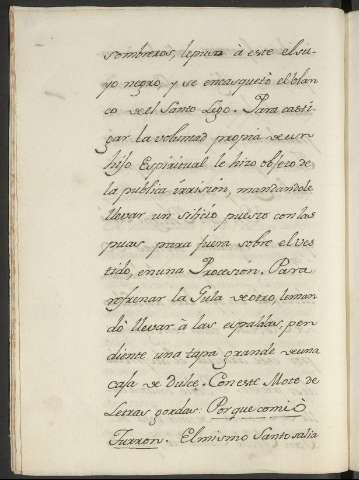 sombreros, le puso à este el su-
yo negro, y se encasquetò el blan
co de el Santo Lego. Para casti
gar la voluntad propria de un
hijo Espiritual le hizo objeto de
la publica irrisión, mandandole
llevar un silicio puesto con las
puas para fuera sobre el ves
tido, en una Procesión. Para
refrenar la Gula de otro, le man
dò llevar à las espaldas, pen
diente una tapa grande de una
caja de dulce. Con este Mote de
Letras gordas: Porque comiò
Turron. El mismo Santo salia